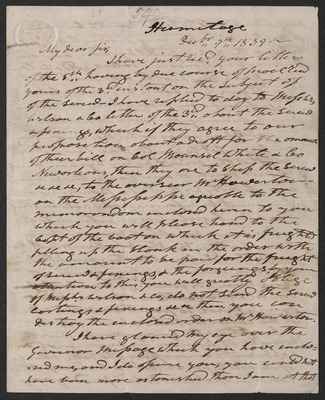 Hermitage
Decbr. 9th 1839
My dear Sir,
I have just recd. your letter
of the 5th having by due course of mail recd
yours of the 3rd instant on the subject of
of the screws. I have replied to day to Messrs
Wilson & Co letter of the 3rd. about the Screws
& fonings, which if they agree to our
proposition about a draft for the amount
of their bill on Col Maunsil White & Co
New orleans, then they are to ship the Screws
&c &c &c, to the overseer Mr Howerton
on the Mississippi agreeable to the
memorandom enclosed herein to you
which you will please hand to the
Capt of the boat on which it is freighted
filling up the blank in the order with
the amount to be paid for the freight
of screws & fonings & the forgings & by your
attention to this you will greatly oblige
If Messrs Wilson & Co, do not send the screws
castings & fonings &c then you can
destroy the enclosed order on Mr Howerton.
I have glanced my eye over the
Governor message which you have enclo-
sed me, and I do assure you, you could not
have been more astonished than I am at that